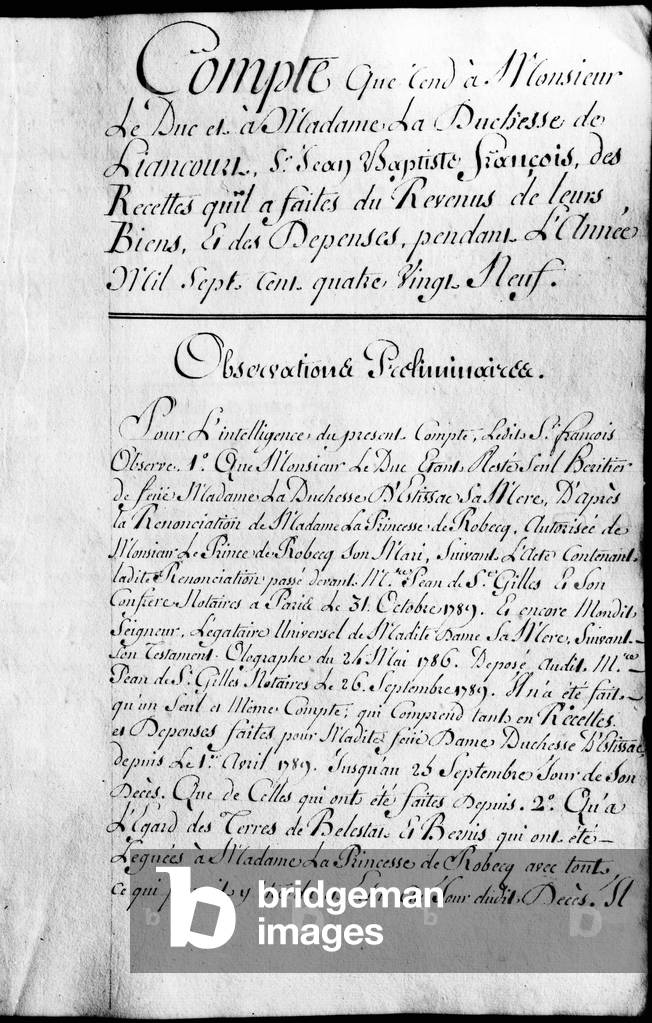 Compte Que rend à Monsieur
Le Duc et à Madame La Duchesse de
Liancourt, Sr. Jean Baptiste François, des
Recettes qu'il a faites du Revenus de leurs
Biens, Et des Depenses, pendant L'Année
Mil Sept Cent quatre Vingt Neuf.
Observations Preliminaires.
Pour L'intelligence du present Compte, Ledit Sr. François
Observe. 1o. Que Monsieur Le Duc Etant Resté Seul Heritier
de feüe Madame La Duchesse D'Estissac Sa Mere, D'après
la Renonciation de Madame La Princesse de Robecq, Autorisée de
Monsieur Le Prince de Robecq Son Mari, Suivant L'acte Contenant
ladite Renonciation passé devant M.re Pean de St. Gilles Et Son
Confrere Notaires a Paris Le 31. Octobre 1789. Et encore Mondit
Seigneur, Legataire Universel de Madite Dame Sa Mere, Suivant
Son Testament Olographe du 24 Mai 1786. Deposé audit M.re
Pean de St. Gilles Notaires Le 26. Septembre 1789. Il n'a été fait
qu'un Seul et Même Compte, qui Comprend tant en Recettes
et Depenses faites pour Madite feüe Dame Duchesse D'Estissac
depuis Le 1er. Avril 1789. Jusqu'au 25 Septembre Jour de Son
Décès. Que de Celles qui ont été faites Depuis. 2o. Qu'a
L'Egard des Terres de Belestat Et Bernis qui ont été
Leguées à Madame La Princesse de Robecq avec tout
ce qui y Jour dudit Décès. Il
b bridgeman
images
b b b b